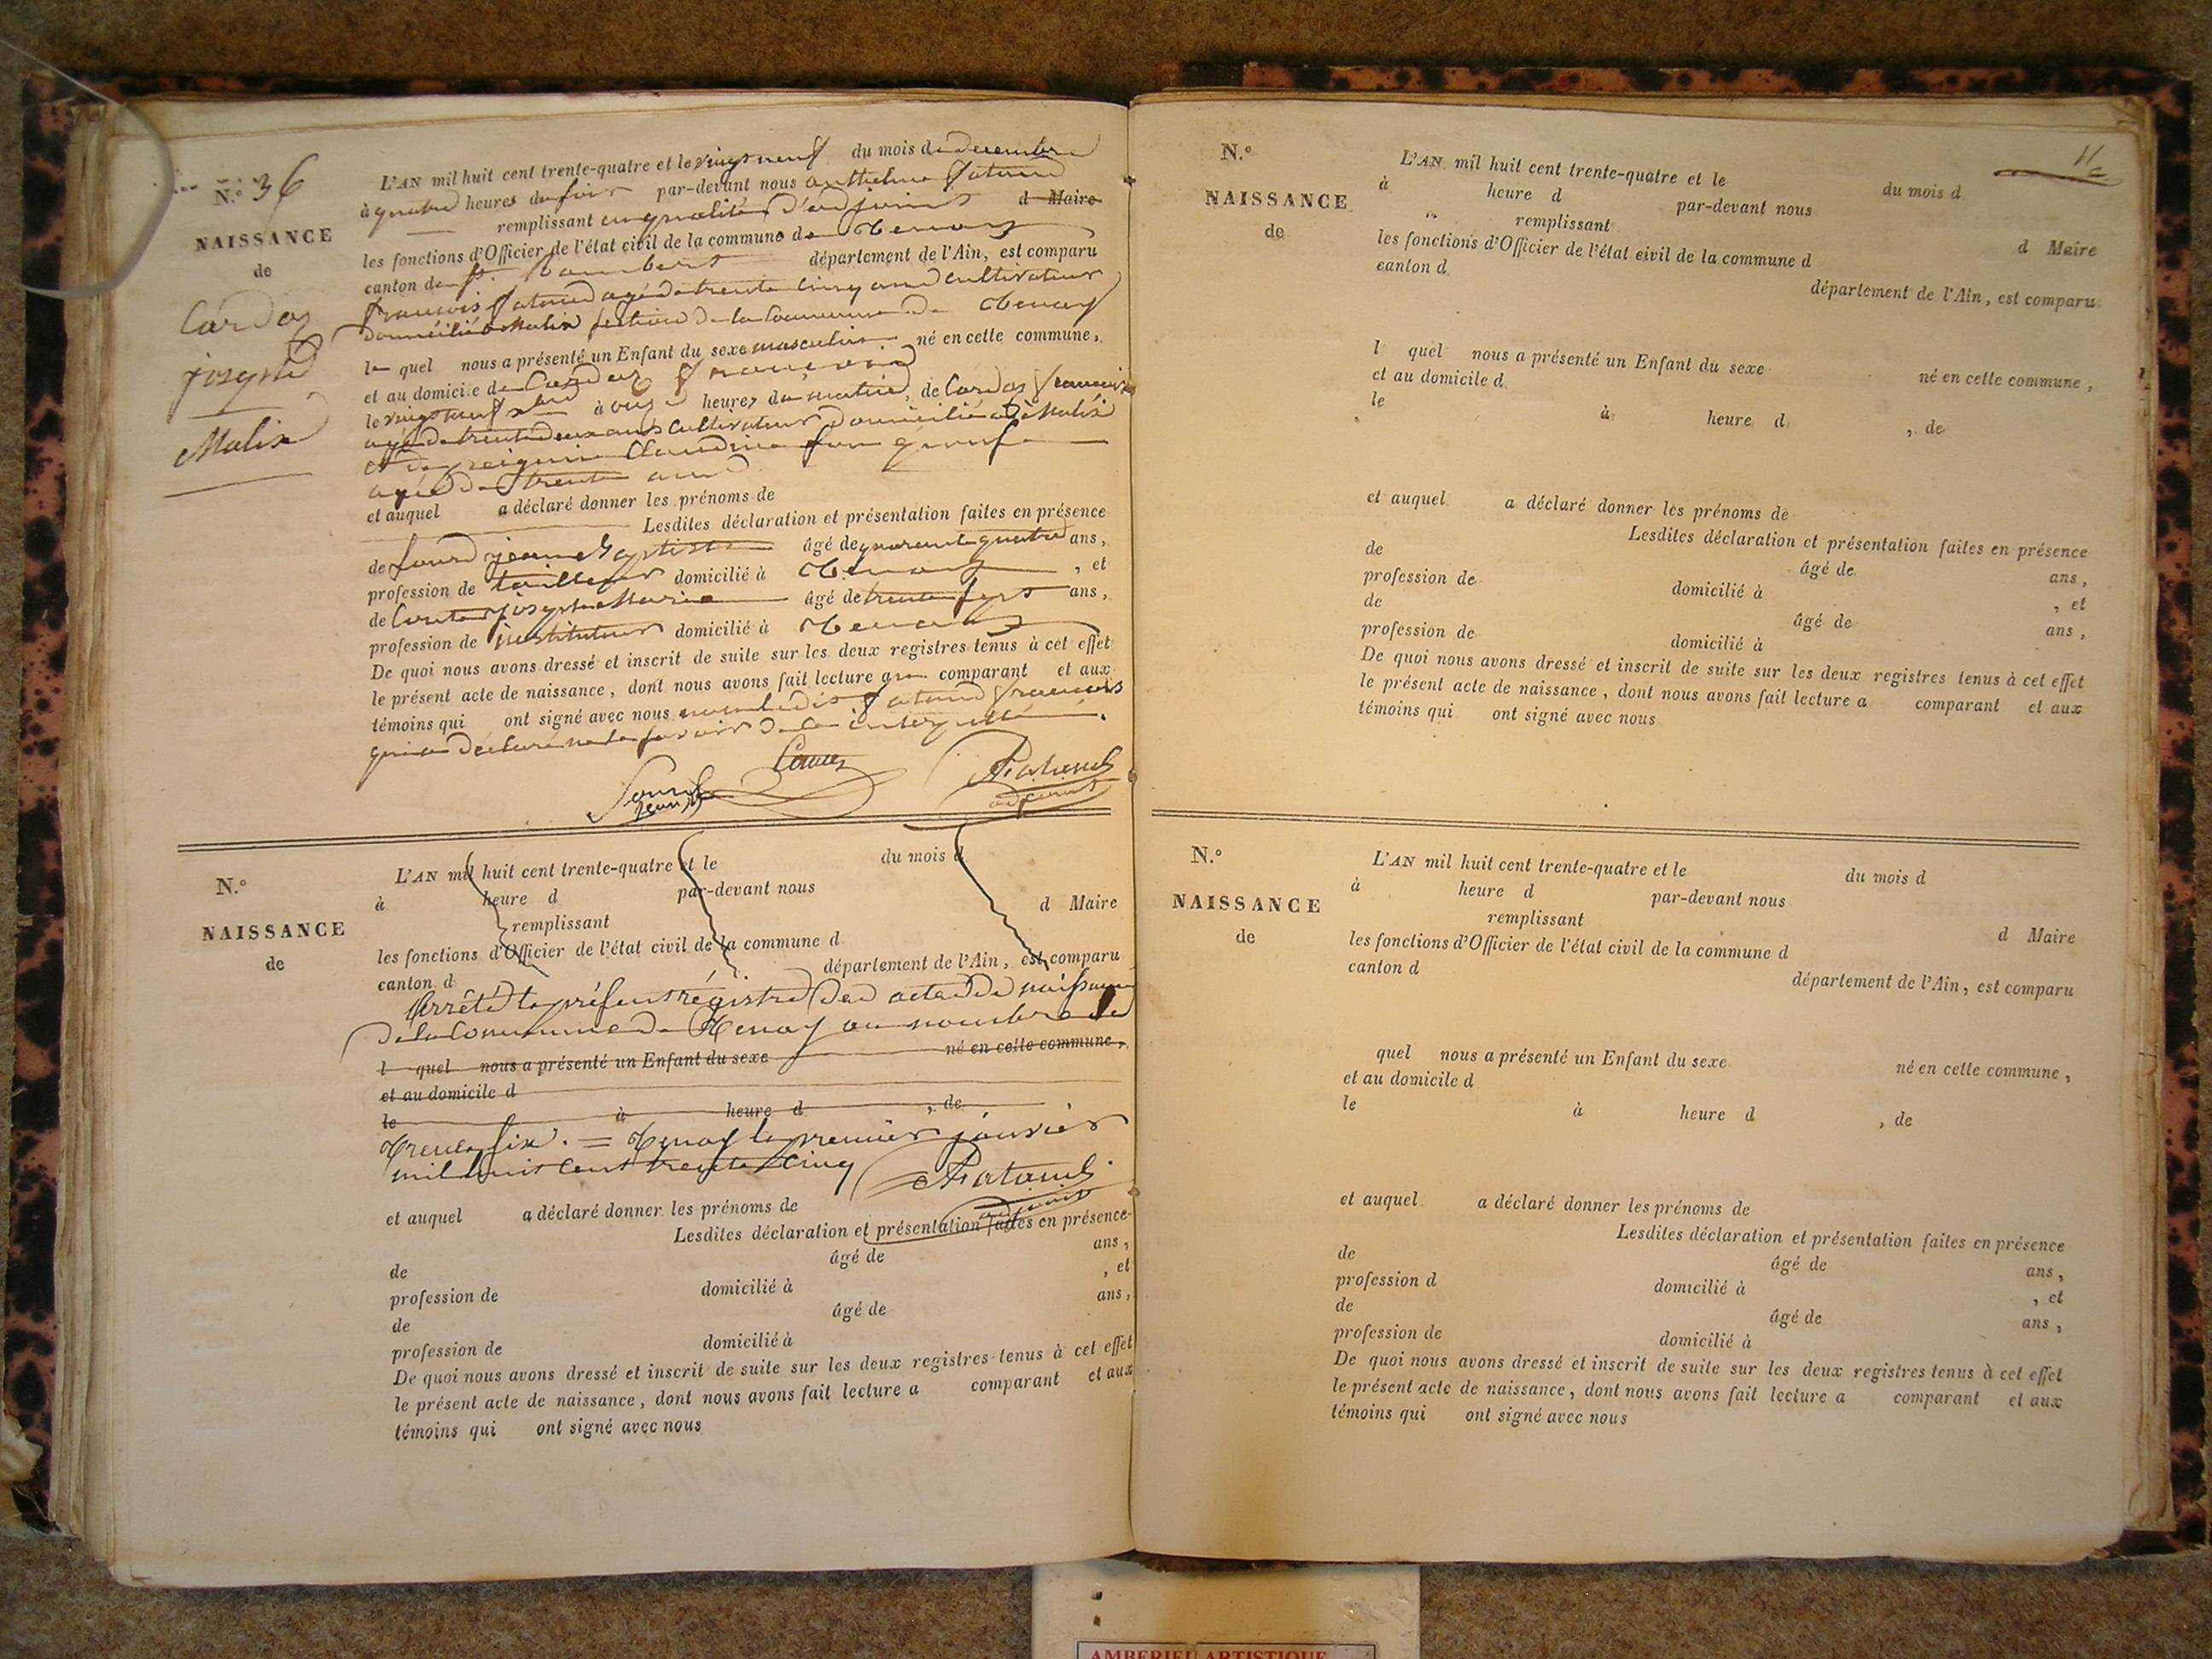 N.º 36
NAISSANCE
de
Cardoz
joseph
Malix
L'AN mil huit cent trente-quatre et le vingt neuf du mois de decembre
à quatre heures du soir par-devant nous anthelme
remplissant en qualité d'adjoint d Maire
les fonctions d'Officier de l'état civil de la commune de Tenay
canton de St Rambert département de l'Ain, est comparu
françois agé de trente cinq ans cultivateur
domicilié à Malix section de la Commune de Tenay
le quel nous a présenté un Enfant du sexe masculin né en cette commune,
et au domicile de Cardoz françois
le vingt neuf à onze heures du matin, de Cardoz françois
agé de trente deux ans cultivateur domicilié à Malix
et de Claudine son
agée de trente ans
et auquel a déclaré donner les prénoms de
Lesdites déclaration et présentation faites en présence
de jean Baptiste âgé de quarante quatre ans,
profession de tailleur domicilié à Tenay, et
de joseph Marie âgé de trente sept ans,
profession de instituteur domicilié à Tenay
De quoi nous avons dressé et inscrit de suite sur les deux registres tenus à cet effet
le présent acte de naissance, dont nous avons fait lecture au comparant et aux
témoins qui ont signé avec nous non ledit françois
qui a déclaré ne le savoir de ce interpellé.
adjoint
N.º
NAISSANCE
de
L'AN mil huit cent trente-quatre et le du mois d
à heure d par-devant nous
remplissant d Maire
les fonctions d'Officier de l'état civil de la commune d
canton d département de l'Ain, est comparu
Arrêté le présent régistre des actes de naissance
de la Commune de Tenay au nombre de
l quel nous a présenté un Enfant du sexe né en cette commune,
et au domicile d
le à heure d , de
Trente six. = Tenay le premier janvier
mil huit cent trente cinq
adjoint
et auquel a déclaré donner les prénoms de
Lesdites déclaration et présentation faites en présence
de âgé de ans,
profession de domicilié à , et
de âgé de ans,
profession de domicilié à
De quoi nous avons dressé et inscrit de suite sur les deux registres tenus à cet effet
le présent acte de naissance, dont nous avons fait lecture a comparant et aux
témoins qui ont signé avec nous
N.º
NAISSANCE
de
L'AN mil huit cent trente-quatre et le du mois d
à heure d par-devant nous
remplissant d Maire
les fonctions d'Officier de l'état civil de la commune d
canton d département de l'Ain, est comparu
l quel nous a présenté un Enfant du sexe né en cette commune,
et au domicile d
le à heure d , de
et auquel a déclaré donner les prénoms de
Lesdites déclaration et présentation faites en présence
de âgé de ans,
profession de domicilié à , et
de âgé de ans,
profession de domicilié à
De quoi nous avons dressé et inscrit de suite sur les deux registres tenus à cet effet
le présent acte de naissance, dont nous avons fait lecture a comparant et aux
témoins qui ont signé avec nous
N.º
NAISSANCE
de
L'AN mil huit cent trente-quatre et le du mois d
à heure d par-devant nous
remplissant d Maire
les fonctions d'Officier de l'état civil de la commune d
canton d département de l'Ain, est comparu
quel nous a présenté un Enfant du sexe né en cette commune,
et au domicile d
le à heure d , de
et auquel a déclaré donner les prénoms de
Lesdites déclaration et présentation faites en présence
de âgé de ans,
profession d domicilié à , et
de âgé de ans,
profession de domicilié à
De quoi nous avons dressé et inscrit de suite sur les deux registres tenus à cet effet
le présent acte de naissance, dont nous avons fait lecture a comparant et aux
témoins qui ont signé avec nous
AMBERIEU ARTISTIQUE